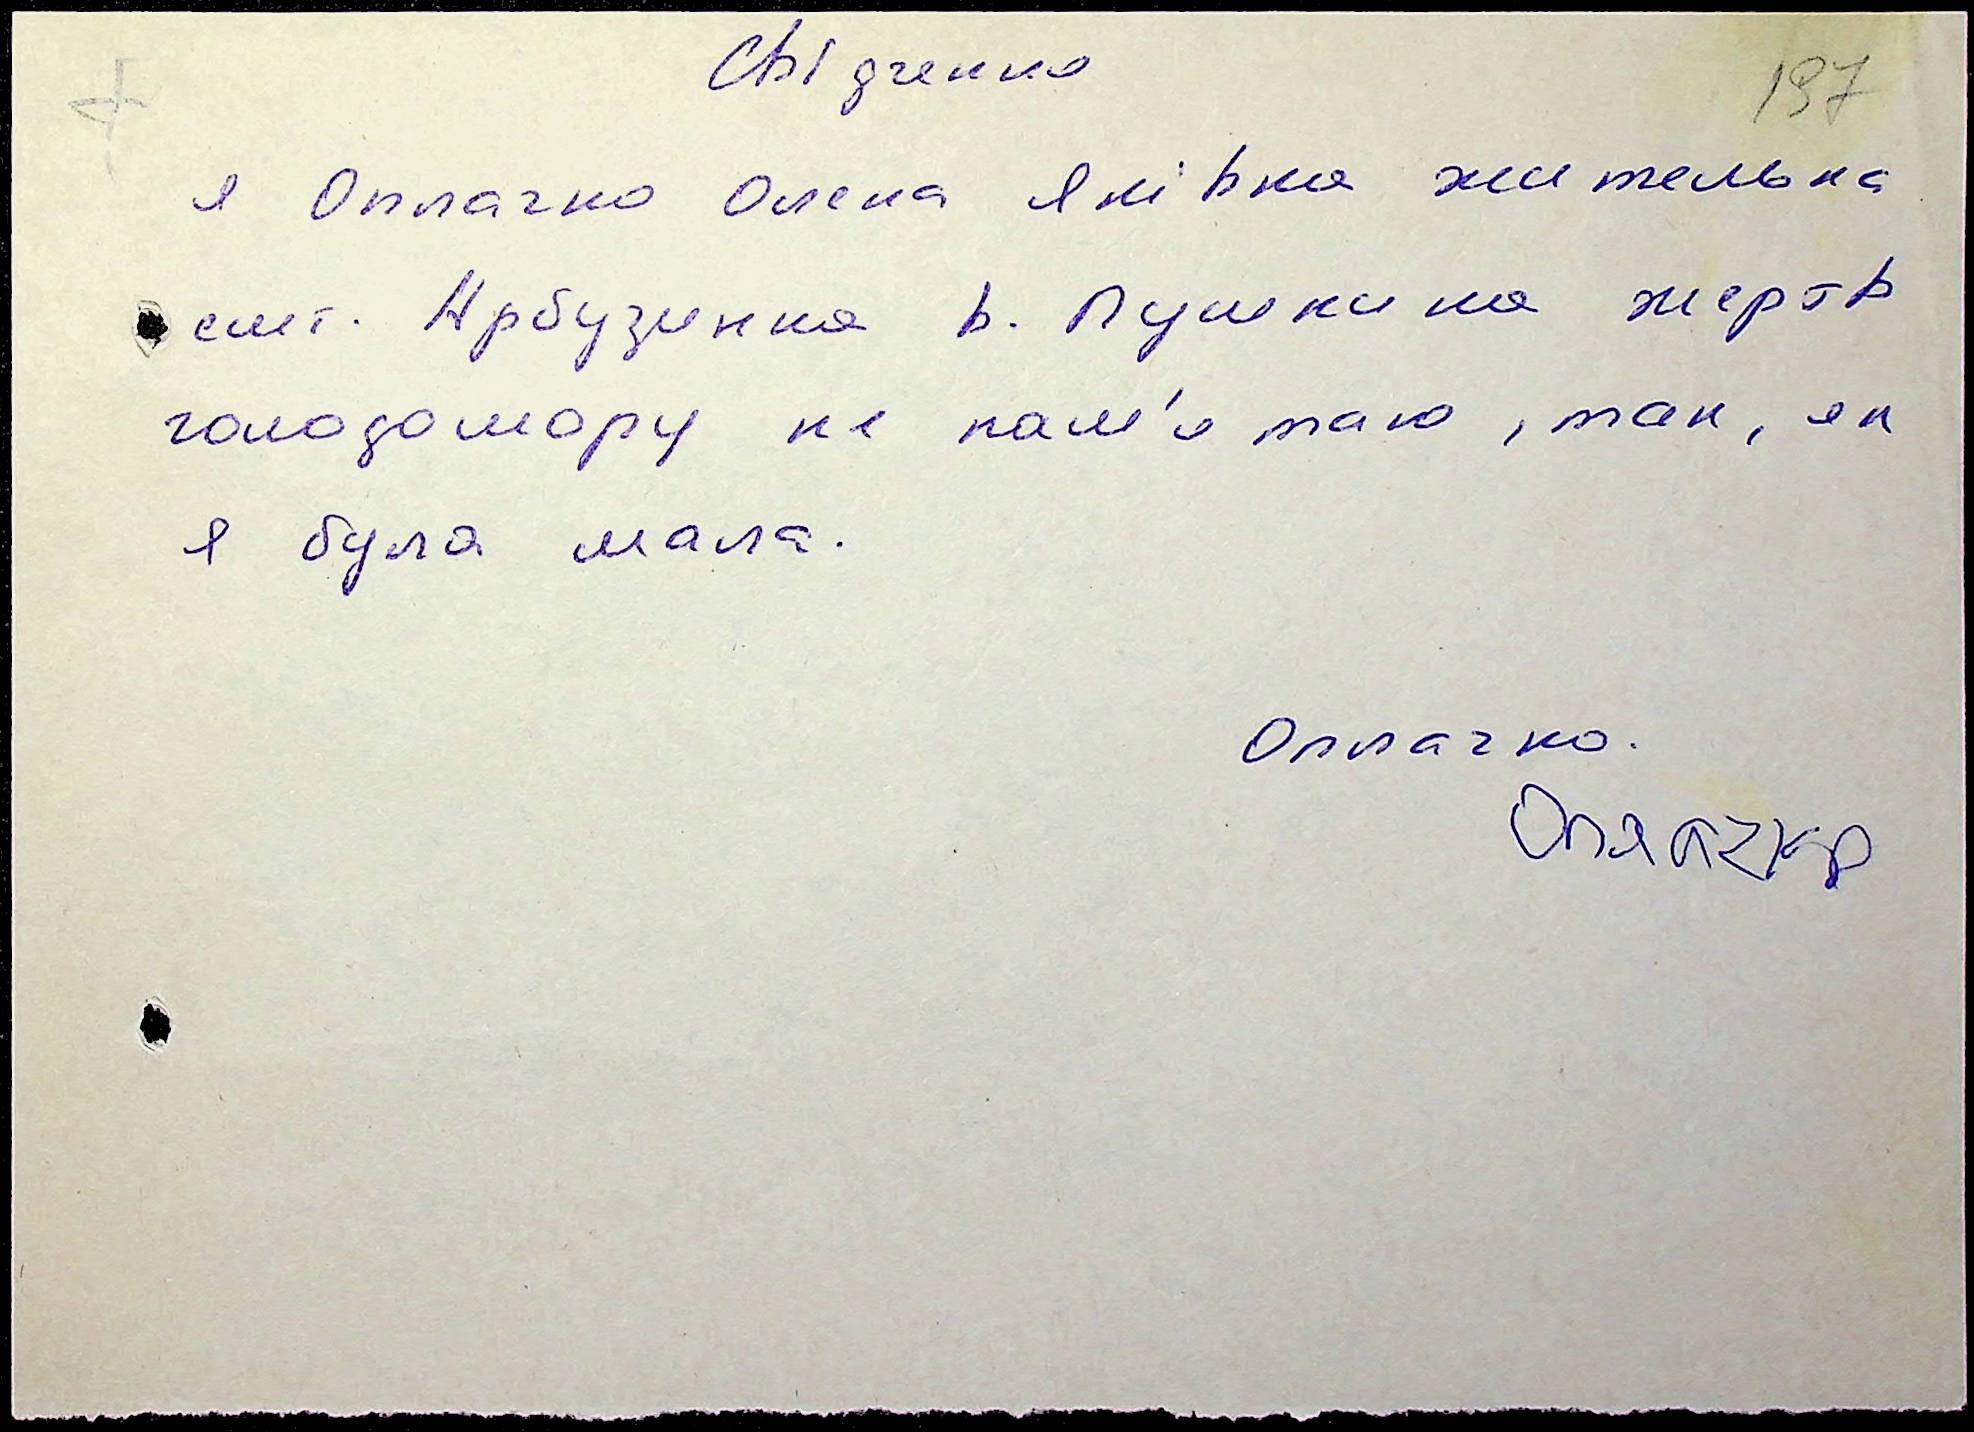 Свідчення
197
я Оплачко Олена Яківна жителька
смт. Арбузинка в. Пушкина жертв
голодомору не пам'ятаю, так, як
я була мала.
Оплачко.